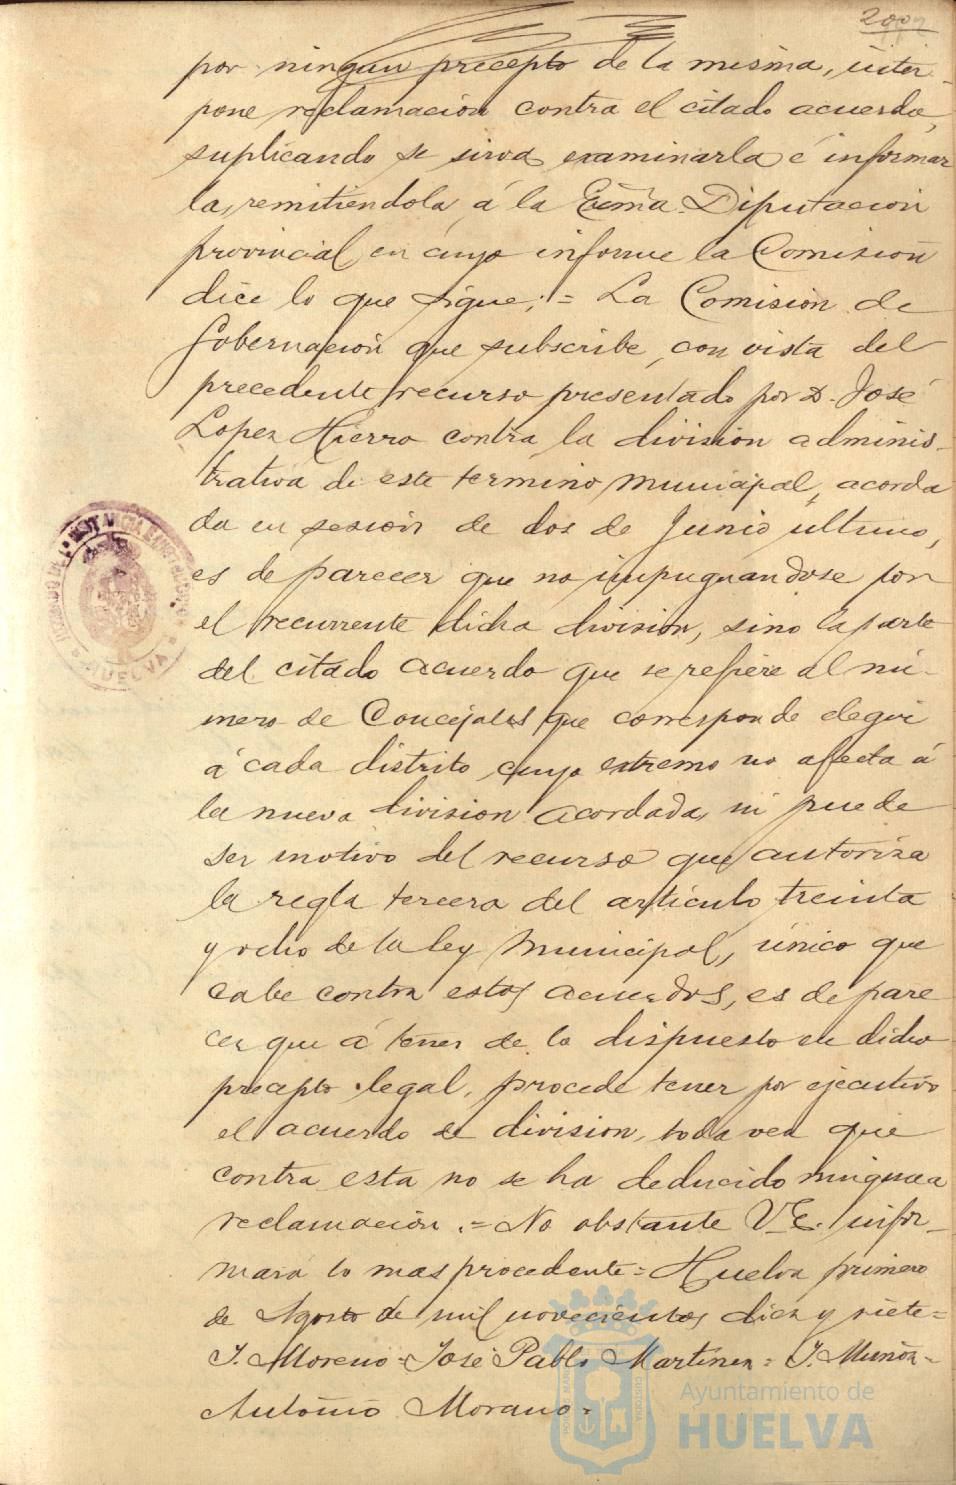 por ningun precepto de la misma, inter-
pone reclamacion contra el citado acuerdo,
suplicando se sirva examinarla é informar
la, remitiéndola á la Excma. Diputacion
provincial, en cuyo informe la Comision
dice lo que sigue: = La Comision de
Gobernacion que subscribe, con vista del
precedente recurso presentado por D. José
Lopez Hierro contra la division adminis-
trativa de este termino municipal, acorda
da en sesion de dos de Junio ultimo,
es de parecer que no impugnandose por
el recurrente dicha division, sino la parte
del citado acuerdo que se refiere al nú-
mero de Concejales que corresponde elegir
á cada distrito cuyo extremo no afecta á
la nueva division acordada, ni puede
ser motivo del recurso que autoriza
la regla tercera del articulo treinta
y ocho de la ley Municipal, único que
cabe contra estos acuerdos, es de pare
cer que á tenor de lo dispuesto en dicho
precepto legal, procede tener por ejecutivo
el acuerdo de division, toda vez que
contra esta no se ha deducido ninguna
reclamacion. = No obstante V.E. infor-
mará lo mas procedente = Huelva primero
de Agosto de mil novecientos diez y siete =
J. Moreno = José Pablo Martinez = J. Muñoz =
Antonio Morano =
HUELVA
Ayuntamiento de
HUELVA